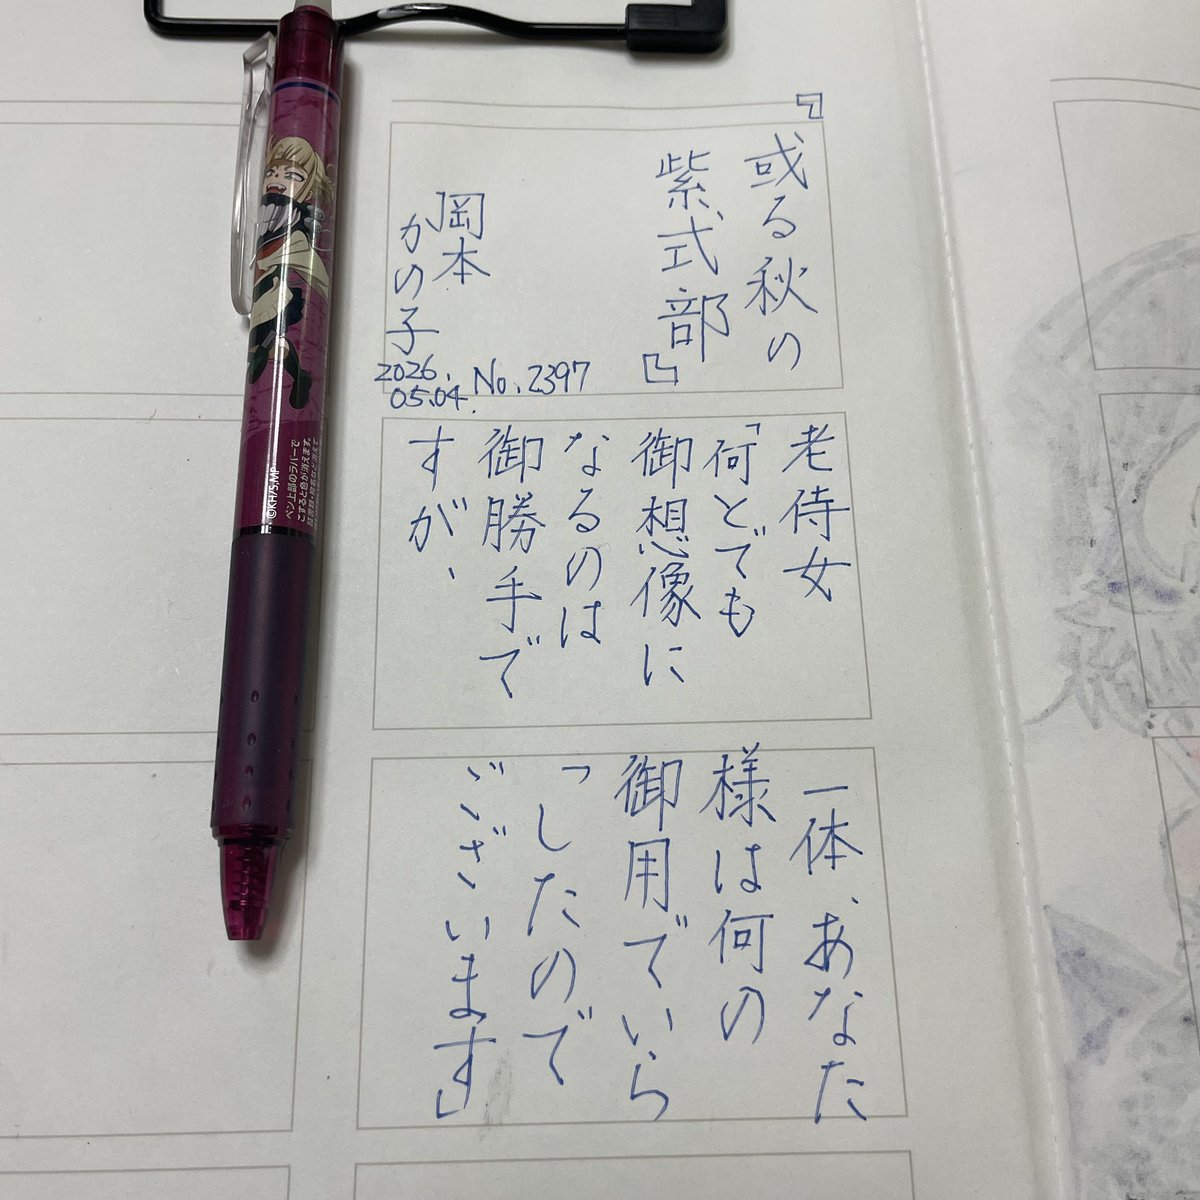 『或る秋の
紫式部』
岡本
かの子
2026.
05.04.
No.2397
老侍女
「何とでも
御想像に
なるのは
御勝手で
すが、
一体、あなた
様は何の
御用でいら
っしたので
ございます」
©KH/S,MP
ペン上部のラバーで
こすると色が消えます。